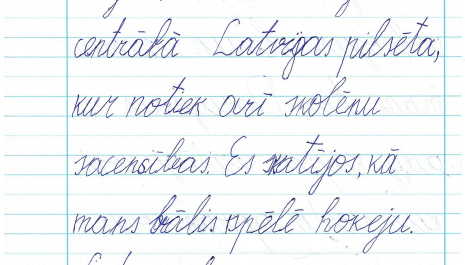 centrālā Latvijas pilsēta,
kur notiek arī skolēnu
sacensības. Es skatījos, kā
mans brālis spēlē hokeju.